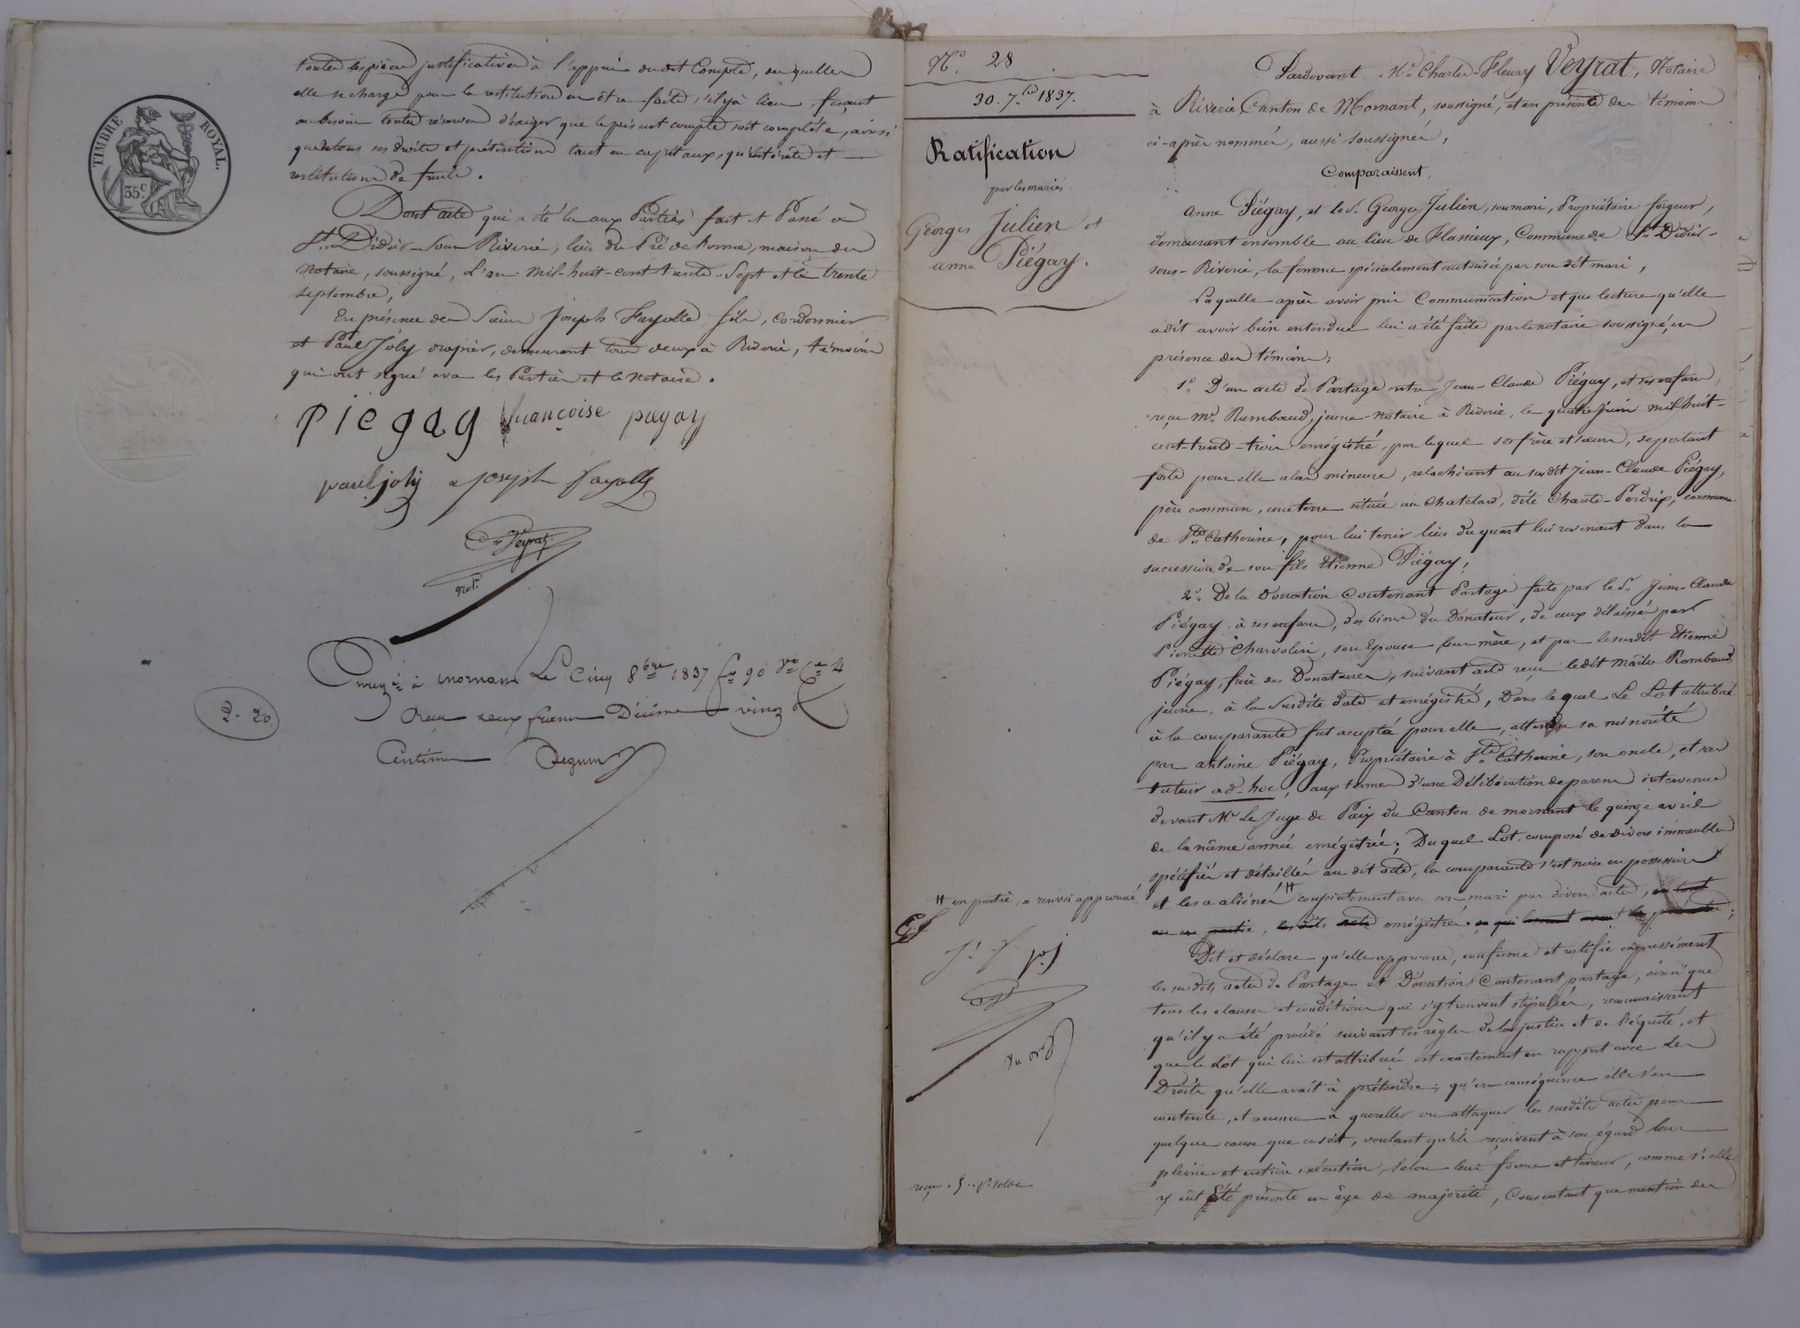 TIMBRE ROYAL.
35 c
toutes les pièces justificatives à l'appui du dit Compte, desquelles
elle se charge pour la restitution en être faite, s'il y a lieu, faisant
au besoin toutes réserves d'exiger que le présent compte soit complété, ainsi
que de tous ses droits et prétentions tant en capitaux, qu'intérêts et
restitutions de fruits.
Dont acte qui a été lu aux Parties fait et Passé à
St Didier-Sous-Riverie, lieu du Pré de Rome, maison du
Notaire, soussigné, L'an mil-huit-cent-trente-Sept et le trente
septembre,
En présence des Sieurs Joseph Fayolle fils, cordonnier
et Paul Joly drapier, demeurant tous deux à Riverie, témoins
qui ont signé avec les Parties et le Notaire.
Piégay françoise pugay
paul joly joseph fayolle
Veyrat
not.
à Mornant Le Cinq 8bre 1837 fo 90 Vo Ce 4
Reçu deux francs Décime vingt
Centimes
2-20
No. 28
30. 7bre 1837.
Ratification
par les mariés
Georges Julien et
anne Piégay.
Pardevant Me Charles-Fleury Veyrat, Notaire
à Riverie Canton de Mornant, soussigné, et en présence des témoins
ci-après nommés, aussi soussignés,
Comparaissent,
Anne Piégay, et le Sr Georges Julien, son mari, Propriétaire forgeur,
demeurant ensemble au lieu de Flassieux, Commune de St Didier-
sous-Riverie, la femme spécialement autorisée par son dit mari,
Laquelle après avoir pris Communication et que lecture qu'elle
a dit avoir bien entendue lui a été faite par le notaire soussigné, en
présence des témoins;
1o. D'un acte de Partage entre Jean-Claude Piégay, et ses enfans,
reçu Me Rambaud, jeune notaire à Riverie, le quatre juin mil-huit-
cent-trente-trois enregistré, par lequel ses frère et sœurs, se portant
forts pour elle alors mineure, relachèrent au susdit Jean-Claude Piégay,
père commun, une terre située au Chatelard, dite Chante-Perdrix, commune
de Ste Catherine, pour lui tenir lieu du quart lui revenant dans la
succession de son fils Etienne Piégay;
2o. De la Donation Contenant Partage faite par le Sr Jean-Claude
Piégay à ses enfans, des biens du Donateur, de ceux délaissés par
Pierrette Charvolin, son Epouse leur mère, et par le susdit Etienne
Piégay, frère des Donataires, suivant acte reçu le dit Maître Rambaud,
jeune, à la Susdite date et enregistré, Dans lequel Le Lot attribué
à la comparante fut accepté pour elle, attendu sa minorité
par antoine Piégay, Propriétaire à Ste Catherine, son oncle, et son
tuteur ad-hoc, aux termes d'une Délibération de parens intervenue
devant Mr Le Juge de Paix du Canton de mornant le quinze avril
de la même année enregistrée; Duquel Lot composé de divers immeubles
spécifiés et détaillés au dit acte, la comparante s'est mise en possession
et les a aliénés H conjointement avec son mari par divers actes, en tout
ou en partie, les dits actes enregistrés
H en partie, = renvoi approuvé
Dit et déclare qu'elle approuve, confirme et ratifie expressément
les susdits actes de Partage et Donation Contenant partage, ainsi que
tous les clauses et conditions qui s'y trouvent stipulées, reconnaissant
qu'il y a été procédé suivant les règles de la justice et de l'équité, et
que le Lot qui lui est attribué est exactement en rapport avec Les
Droits qu'elle avait à prétendre; qu'en conséquence elle s'en
contente, et renonce à quereller ou attaquer les susdits actes pour
quelque cause que ce soit, voulant qu'ils reçoivent à son égard leur
pleine et entière exécution, Selon leur forme et teneur, comme si elle
y eût été présente en âge de majorité, Consentant que mention des
reçu . 5 .. pr solde